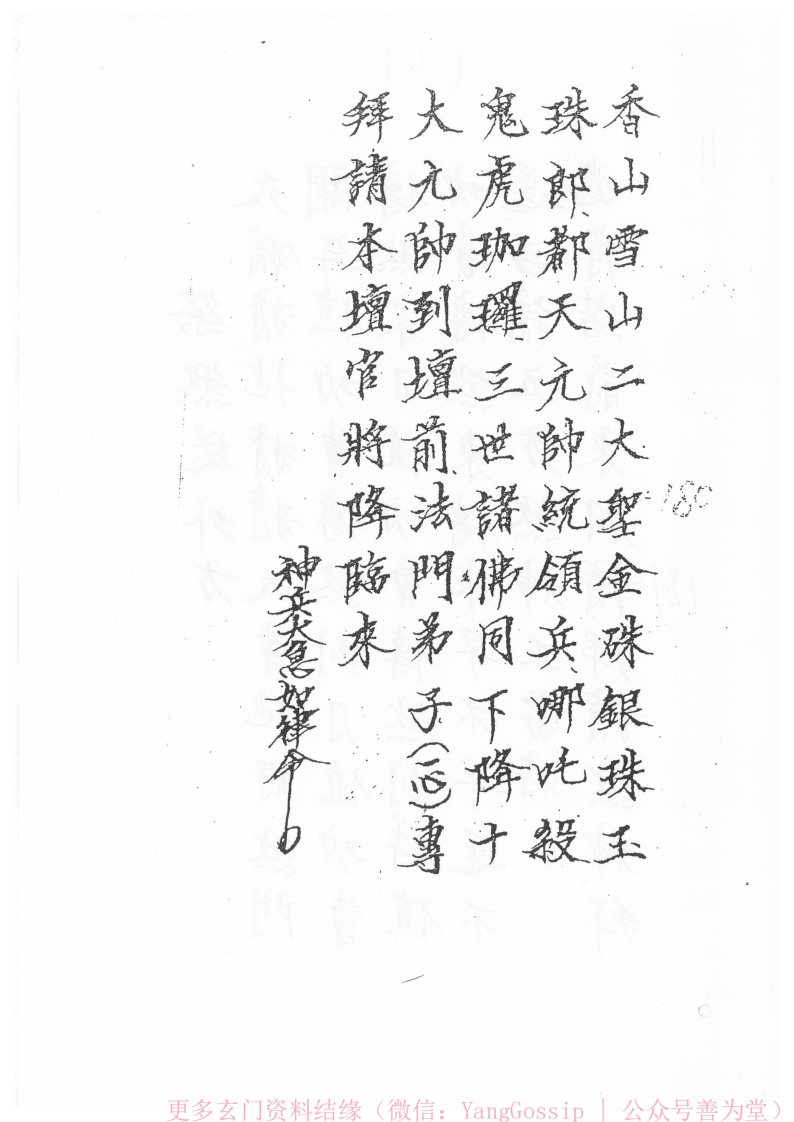 香山雪山二大聖金硃銀珠玉
珠郎都天元帥統領兵哪吒殺
鬼虎珈瑘三世諸佛同下降十
大元帥到壇前法門弟子(一心)專
拜請本壇官將降臨來
神兵火急如律令
180
更多玄门资料结缘（微信：YangGossip | 公众号善为堂）